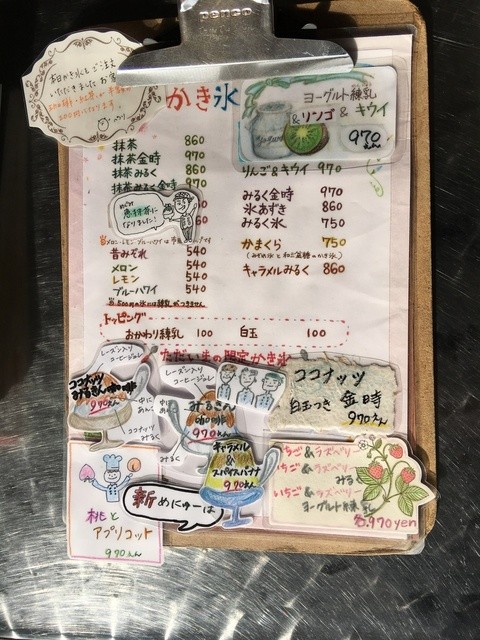 penco
本日かき氷をご注文
いただきましたお客
かき氷
ヨーグルト練乳
&リンゴ&キウイ
970えん
抹茶 860
抹茶金時 970
抹茶みるく 860
抹茶みるく金時 970
になりました!
りんご&キウイ 970
みるく金時 970
氷あずき 860
みるく氷 750
かまくら 750
(みぞれ氷と和三盆糖のかき氷)
キャラメルみるく 860
昔みぞれ 540
メロン 540
レモン 540
ブルーハワイ 540
500円氷には練乳がつきません
トッピング
おかわり練乳 100 白玉 100
ただいまの限定かき氷
レーズン入り
コーヒージュレ
ココナッツ
みるきん珈琲
970えん
中に
あんこ
ココナッツ
みるく
レーズン入り
コーヒージュレ
みるきん
珈琲
970えん
みるく
ココナッツ
白玉つき 金時
970えん
キャラメル
&
スパイスバナナ
970えん
新めにゅーは
桃と
アプリコット
970えん
いちご&ラズベリー
いちご&ラズベリー
みる
いちご&ラズベリー
ヨーグルト練乳
各970yen